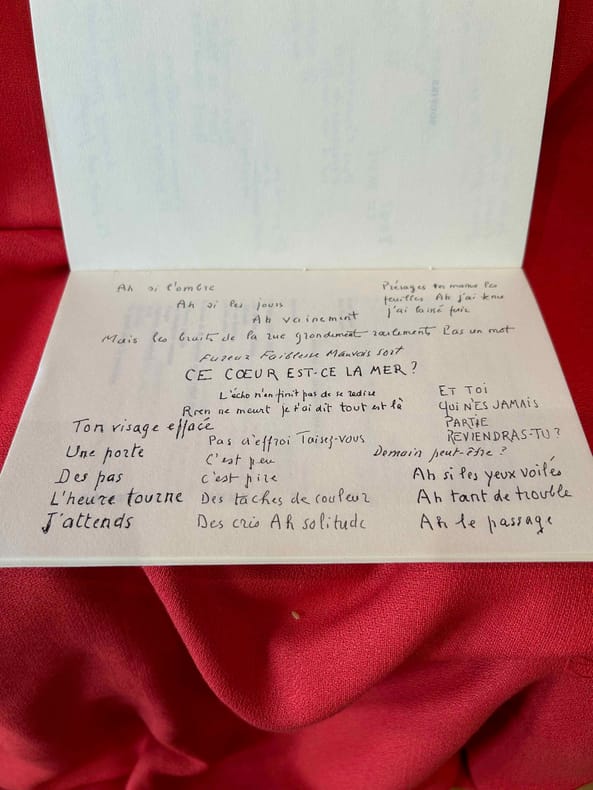 Ah si l'ombre
Ah si les jours
Ah vainement
Présages ton même les
feuilles Ah j'ai tenu
j'ai laissé fuir
Mais les bruits de la rue grondement roulements Pas un mot
Fureur Faiblesse Mauvais sort
CE CŒUR EST-CE LA MER ?
L'écho n'en finit pas de se redire
Rien ne meurt je t'ai dit tout est là
ET TOI
QUI N'ES JAMAIS
PARTIE
REVIENDRAS-TU ?
Demain peut-être ?
Ton visage effacé
Une porte
Des pas
L'heure tourne
J'attends
Pas d'effroi Taisez-vous
C'est peu
c'est pire
Des taches de couleur
Des cris Ah solitude
Ah si les yeux voilés
Ah tant de trouble
Ah le passage